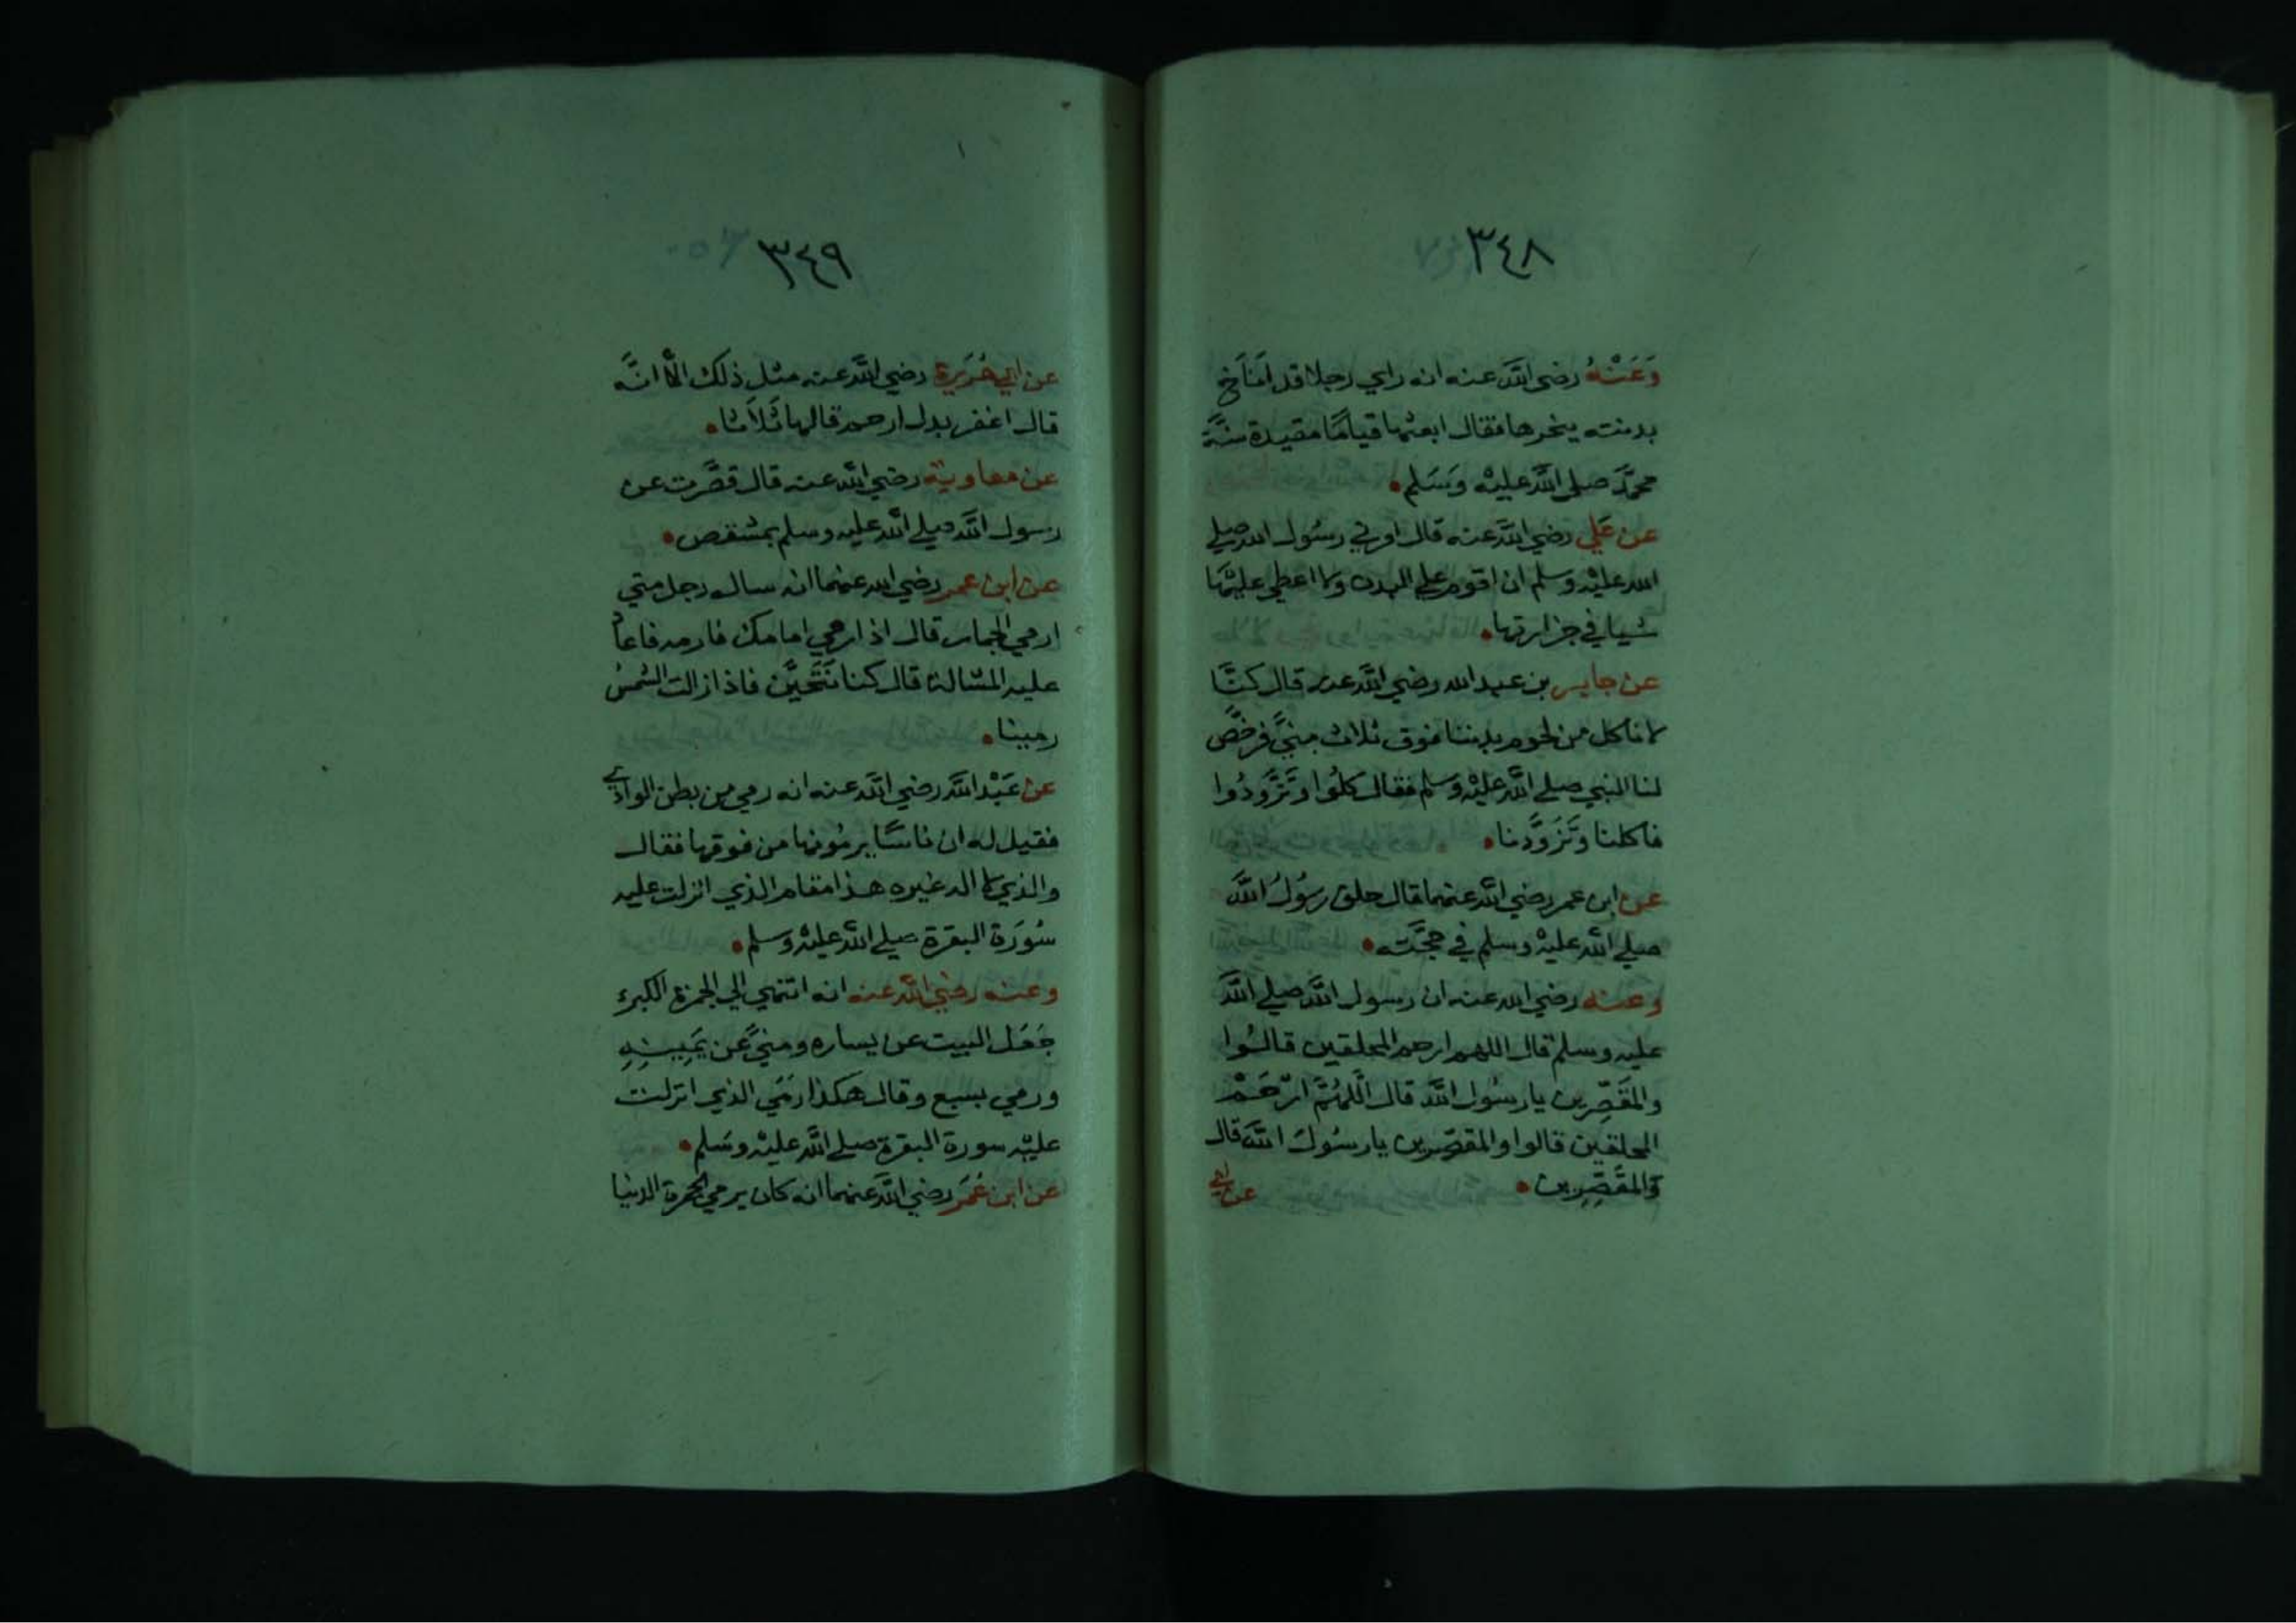 ٣٤٨
وَعَنْهُ رضي اللَّه عنه انه راي رجلا قد اَنَاخ
بدنته ينحرها فقال ابعثها قيامًا مقيدة سنَّة
محمَّد صلي اللَّه عليْه وَسَلم •
عن عَلي رضي اللَّه عنه قال امرني رسُول الله صلي
الله عليْه وسلم ان اقوم علي البدن ولا اعطي عليْها
شيا في جزارتها •
عن جابر بن عبد الله رضي اللَّه عنه قال كنَّا
لا ناكل من لحوم بدننا فوق ثلاث منيً فرخَّص
لنا النبي صلي اللَّه عليْه وسلم فقال كلُوا وَتَزَّودُوا
فاكلنا وَتَزَوَّدنا •
عن ابن عمر رضي اللَّه عنهما قال حلق رسُولُ اللَّه
صلي اللَّه عليْه وسلم في حجَّته •
وعنه رضي الله عنه ان رسول اللَّه صلي اللَّه
عليه وسلم قال اللهم ارحم المحلقين قالُوا
والمقَصِّرين يا رسُول اللَّه قال اللَّهُمَّ ارْحَمْ
المحلقين قالوا والمقصّرين يا رسُولَ اللَّه قال
وَالمقَصِّرِين •
عن ابي
٣٤٩
عن ابي هُرَيرة رضي اللَّه عنه مثل ذلك الَّا انَّه
قال اغفر بدل ارحم قالها ثَلاَثا •
عن معاوية رضي اللَّه عنه قال قصَّرت عن
رسول اللَّه صلي اللَّه عليه وسلم بمشقص •
عن ابن عمر رضي الله عنهما انه ساله رجل متي
ارمي الجمار قال اذا رمي امامك فارمه فاعاد
عليه المسالة قال كنا نَتَحيَّن فاذا زالت الشمسُ
رمينا •
عن عَبْد اللَّه رضي اللَّه عنه انه رمي من بطن الوادي
فقيل له ان ناسًا يرمُونها من فوقها فقال
والذي لا اله غيره هذا مقام الذي انزلت عليه
سُورَة البقرة صلي اللَّه عليْه وسلم •
وعنه رضي اللَّه عنه انه انتهي الي الجمرة الكبري
جَعَل البيت عن يساره ومنيً عَن يَمِينِهِ
ورمي بسبع وقال هكذا رَمَي الذي انزلت
عليْه سورة البقرة صلي اللَّه عليْه وسَلم •
عن ابن عُمَر رضي اللَّه عنهما انه كان يرمي الجمرة الدنيا